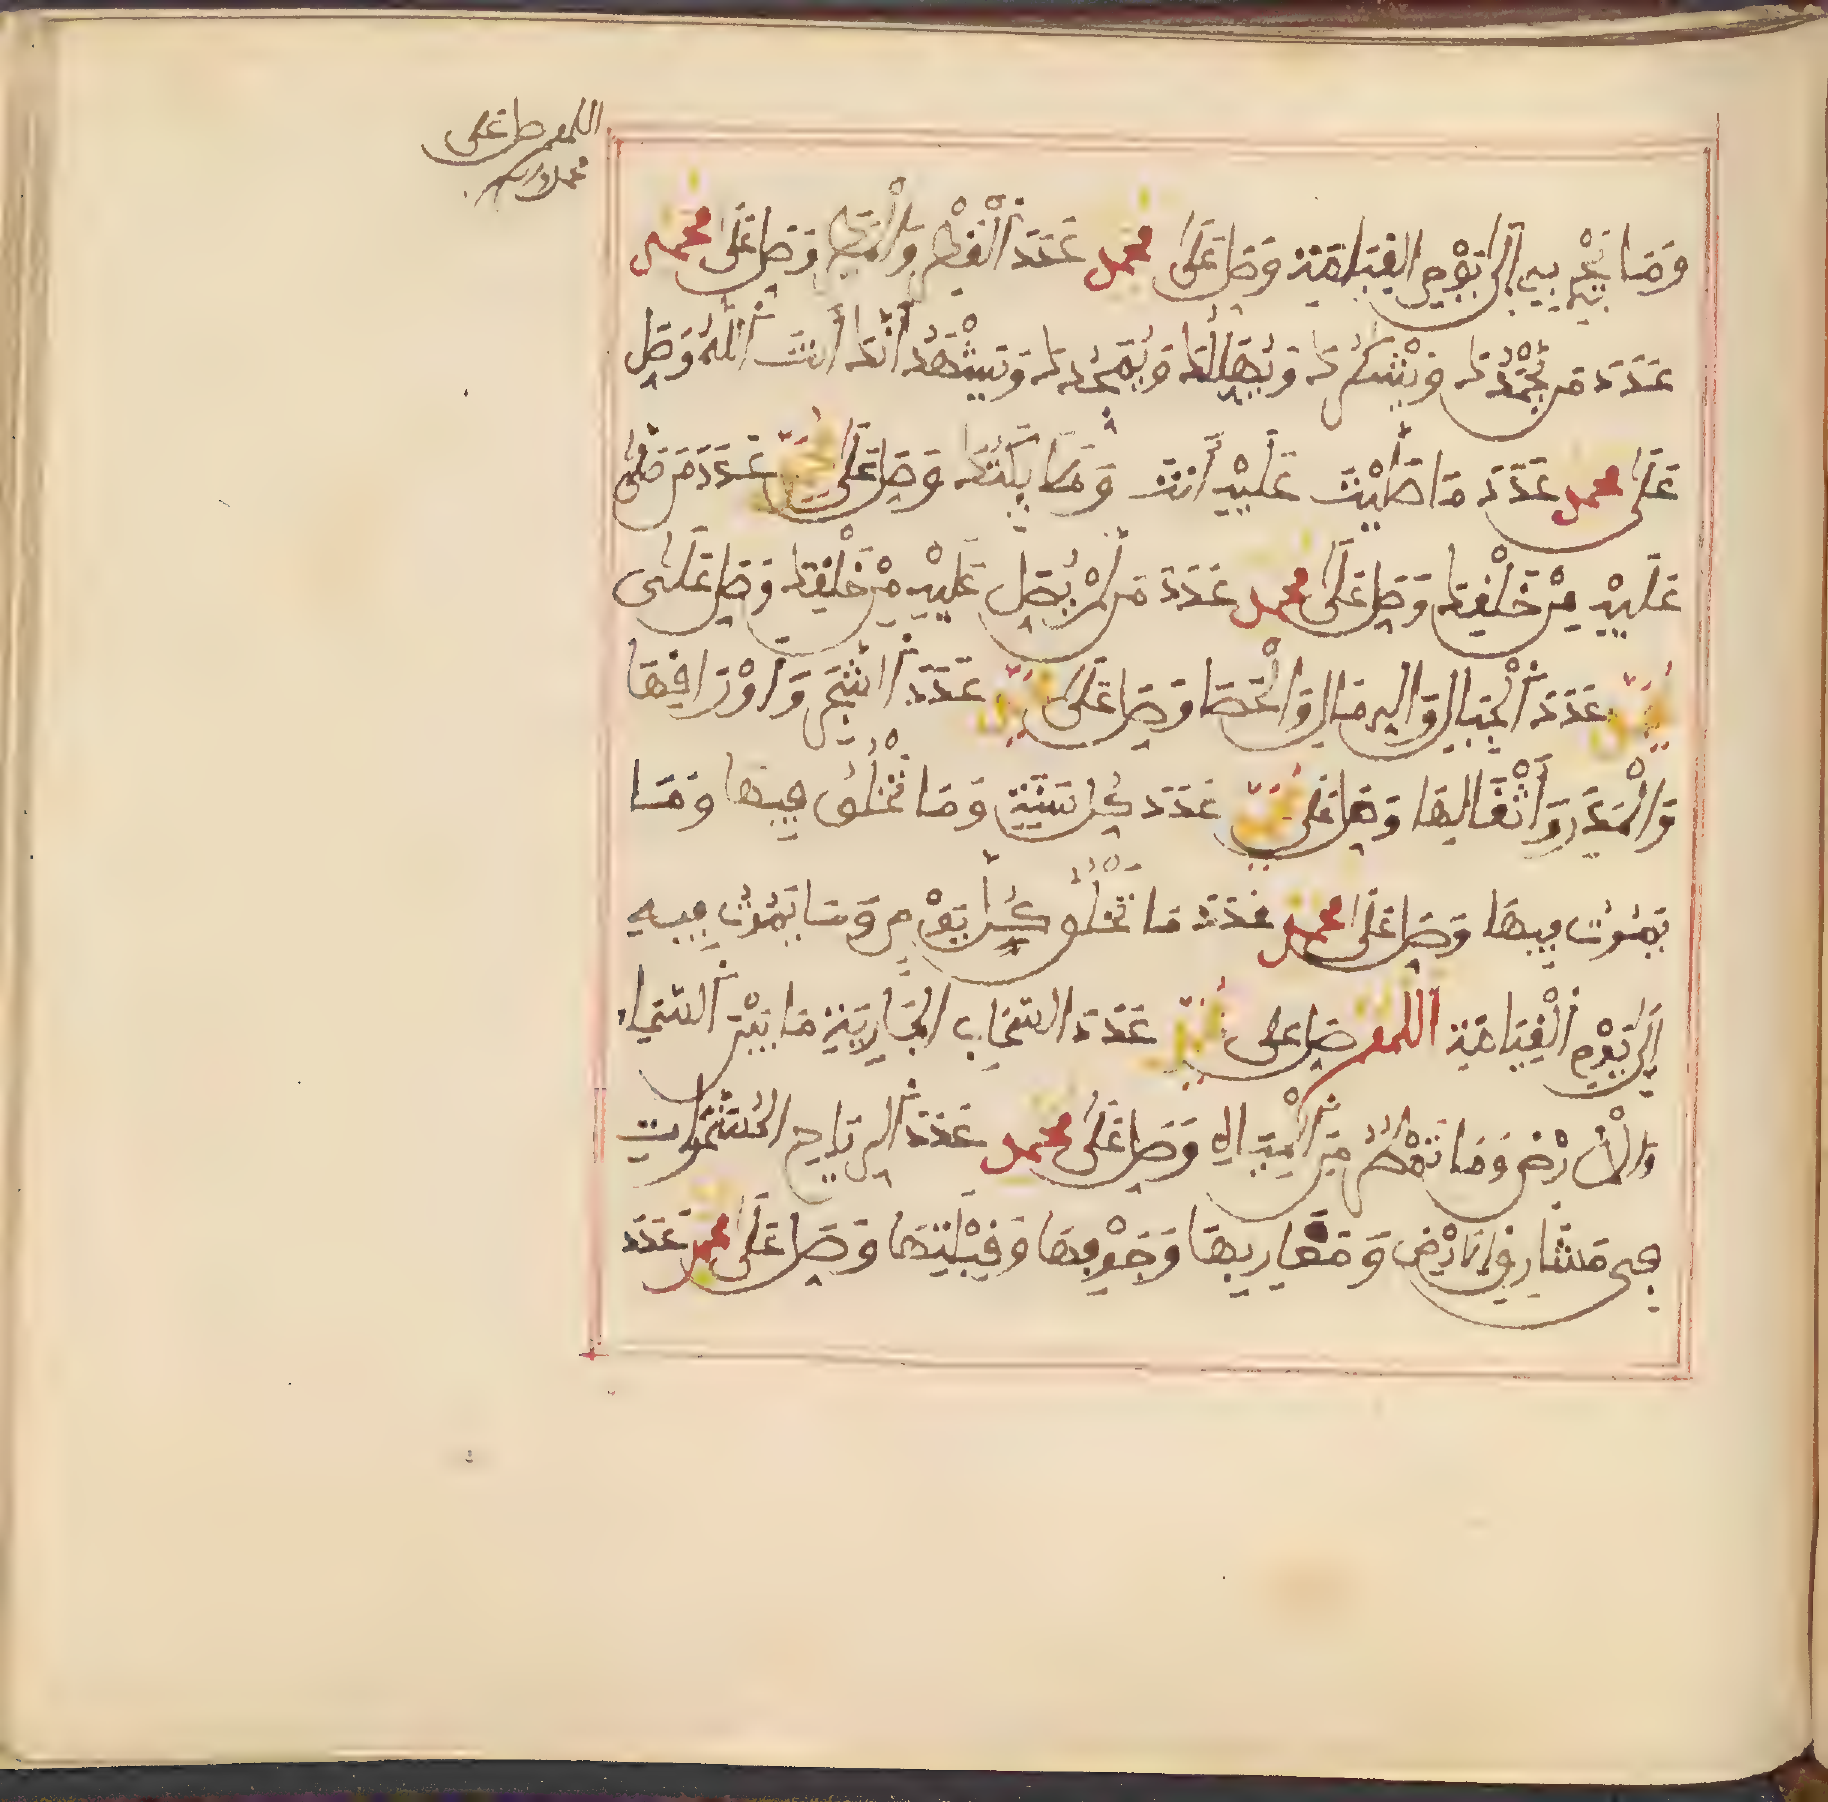 اللهم صل على
محمد وسلم
وَمَا يَجْرِ بِهِ إِلَى يَوْمِ الْقِيَامَةِ وَصَلِّ عَلَى مُحَمَّدٍ عَدَدَ الْقَطْرِ وَالْمَطَرِ وَصَلِّ عَلَى مُحَمَّدٍ
عَدَدَ مَن يَحْمَدُكَ وَيَشْكُرُكَ وَيُهَلِّلُكَ وَيُمَجِّدُكَ وَيَشْهَدُ أَنَّكَ أَنتَ اللَّهُ وَصَلِّ
عَلَى مُحَمَّدٍ عَدَدَ مَا صَلَّيْتَ عَلَيْهِ أَنتَ وَمَلَائِكَتُكَ وَصَلِّ عَلَى مُحَمَّدٍ عَدَدَ مَن صَلَّى
عَلَيْهِ مِنْ خَلْقِكَ وَصَلِّ عَلَى مُحَمَّدٍ عَدَدَ مَن لَمْ يُصَلِّ عَلَيْهِ مِنْ خَلْقِكَ وَصَلِّ عَلَى
مُحَمَّدٍ عَدَدَ الْجِبَالِ وَالرِّمَالِ وَالْحَصَا وَصَلِّ عَلَى مُحَمَّدٍ عَدَدَ الشَّجَرِ وَأَوْرَاقِهَا
وَالْمَدَرِ وَأَثْقَالِهَا وَصَلِّ عَلَى مُحَمَّدٍ عَدَدَ كُلِّ سَنَةٍ وَمَا تَخْلُقُ فِيهَا وَمَا
يَمُوتُ فِيهَا وَصَلِّ عَلَى مُحَمَّدٍ عَدَدَ مَا تَخْلُقُ كُلَّ يَوْمٍ وَمَا يَمُوتُ فِيهِ
إِلَى يَوْمِ الْقِيَامَةِ اللهم صَلِّ على مُحَمَّدٍ عَدَدَ السَّحَابِ الْجَارِيَةِ مَا بَيْنَ السَّمَاءِ
وَالْأَرْضِ وَمَا تَمْطُرُ مِنَ الْمِيَاهِ وَصَلِّ عَلَى مُحَمَّدٍ عَدَدَ الرِّيَاحِ الْمُسَخَّرَاتِ
فِي مَشَارِقِ الْأَرْضِ وَمَغَارِبِهَا وَجَوْفِهَا وَقِبْلَتِهَا وَصَلِّ عَلَى مُحَمَّدٍ عَدَدَ